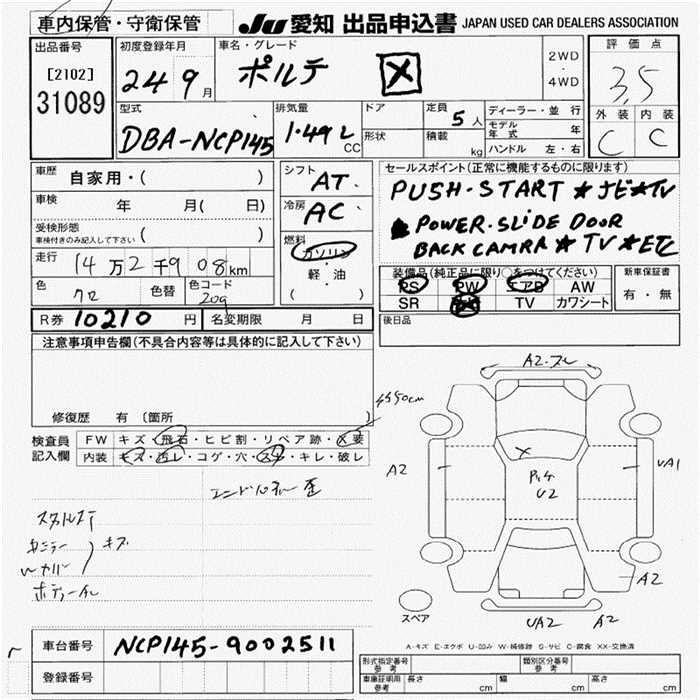 車内保管・守衛保管
JU 愛知 出品申込書 JAPAN USED CAR DEALERS ASSOCIATION
出品番号 [2102] 31089
初度登録年月 24 9月
車名・グレード ポルテ X
2WD・4WD
評価点 3.5
型式 DBA-NCP145
排気量 1.49L CC
ドア 形状
定員 5人
積載 kg
ディーラー・並行
モデル年式 年
ハンドル 左・右
外装 C 内装 C
車歴 自家用・( )
シフト AT.
セールスポイント(正常に機能するものに限ります)
PUSH・START ★ナビ★TV
POWER・SLIDE DOOR
BACK CAMRA ★ TV ★ETC
車検 年 月( 日)
冷房 AC
受検形態 ( )
車検付きのみ記入して下さい
燃料 ガソリン・軽・油 ( )
走行 14万2千908km
装備品(純正品に限り○をつけてください)
PS PW エアB AW
SR TV カワシート
新車保証書 有・無
色 クロ 色替 色コード 209
R券 10210 円 名変期限 月 日
後日品
注意事項申告欄(不具合内容等は具体的に記入して下さい)
修復歴 有 〔箇所
検査員記入欄
FW キズ・飛石・ヒビ割・リペア跡・X要
内装 キズ・汚レ・コゲ・穴・スレ・キレ・破レ
キズ
A2
A2
UA1
U2
A2
UA2 A2
スペア
A-キズ E-エクボ U-凹み W-補修跡 S-サビ C-腐食 XX-交換済
車台番号 NCP145-9002511
登録番号
形式指定番号 参考 類別区分番号 参考
車庫証明用 参考 長さ cm 幅 cm 高さ cm